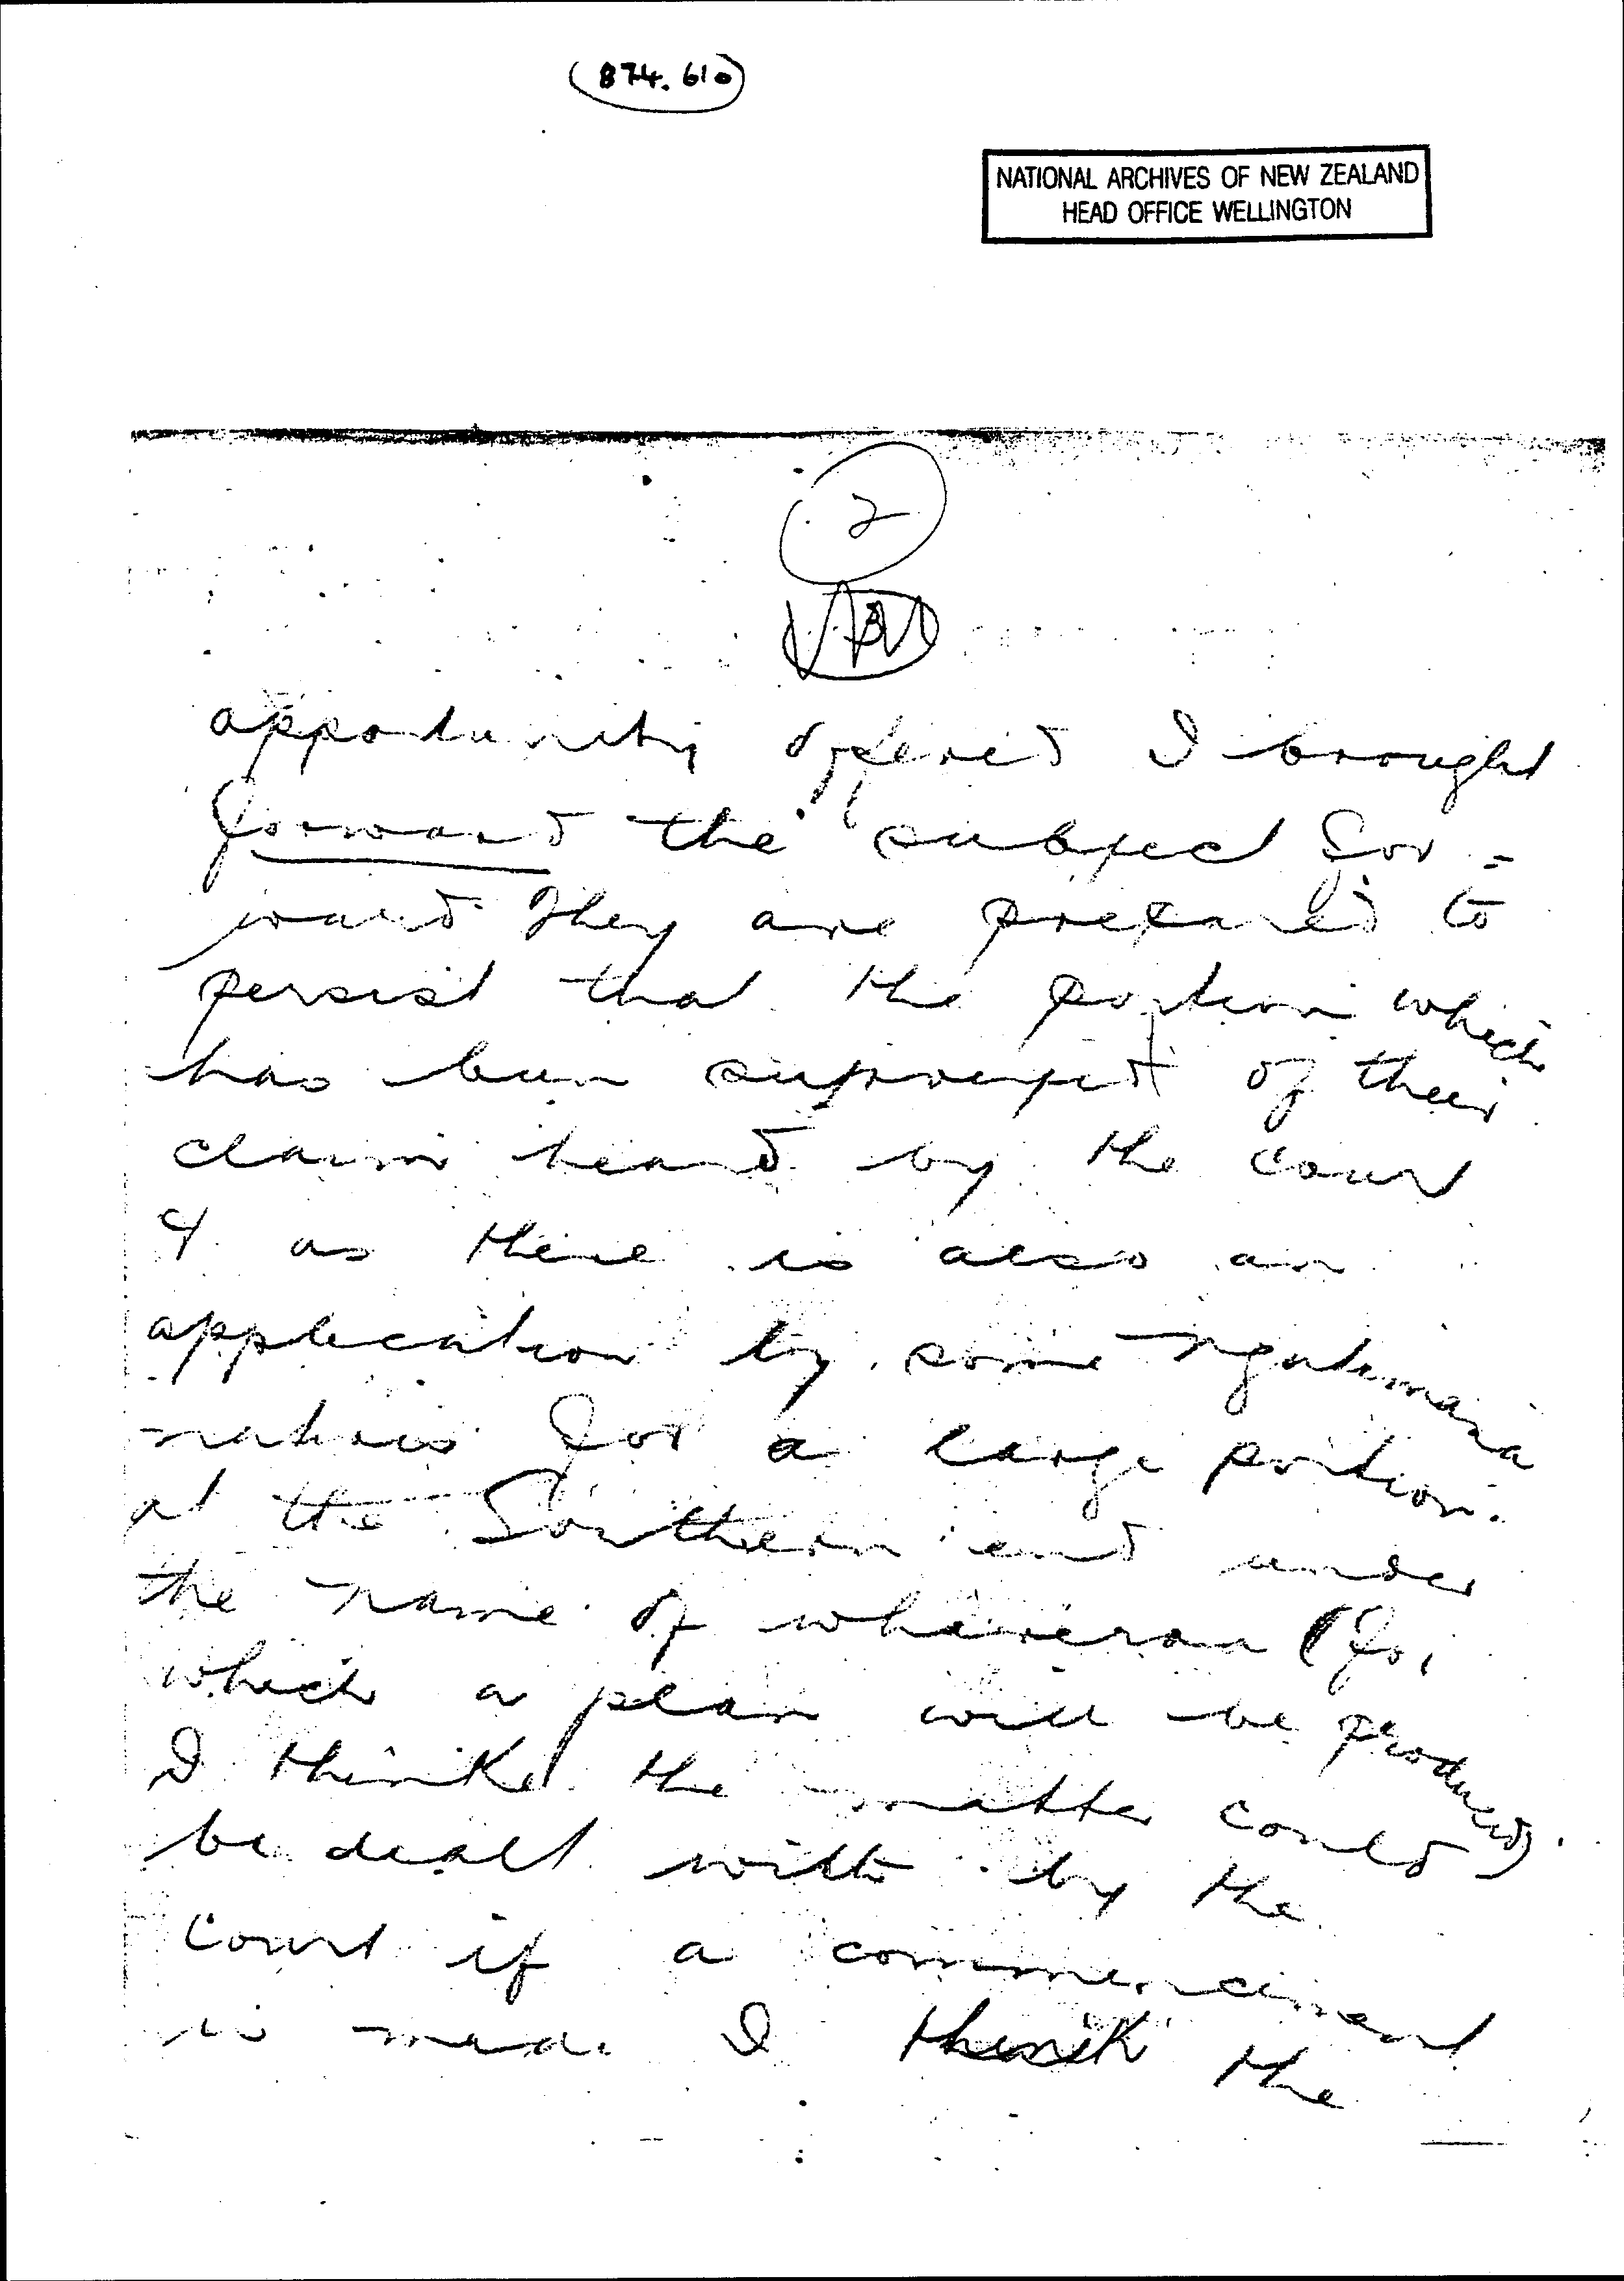 (874.610)
NATIONAL ARCHIVES OF NEW ZEALAND
HEAD OFFICE WELLINGTON
2
opportunity offered I brought
forward the subject for=
ward They are prepared to
persist that the portion which
has been surveyed of their
claim heard by the Court
& as there is also an
application by some Ngatimaru
natives for a large portion
at the Southern end under
the name of (for
which a plan will be produced)
I think the matter could
be dealt with by the
Court if a commencement
is made I think the